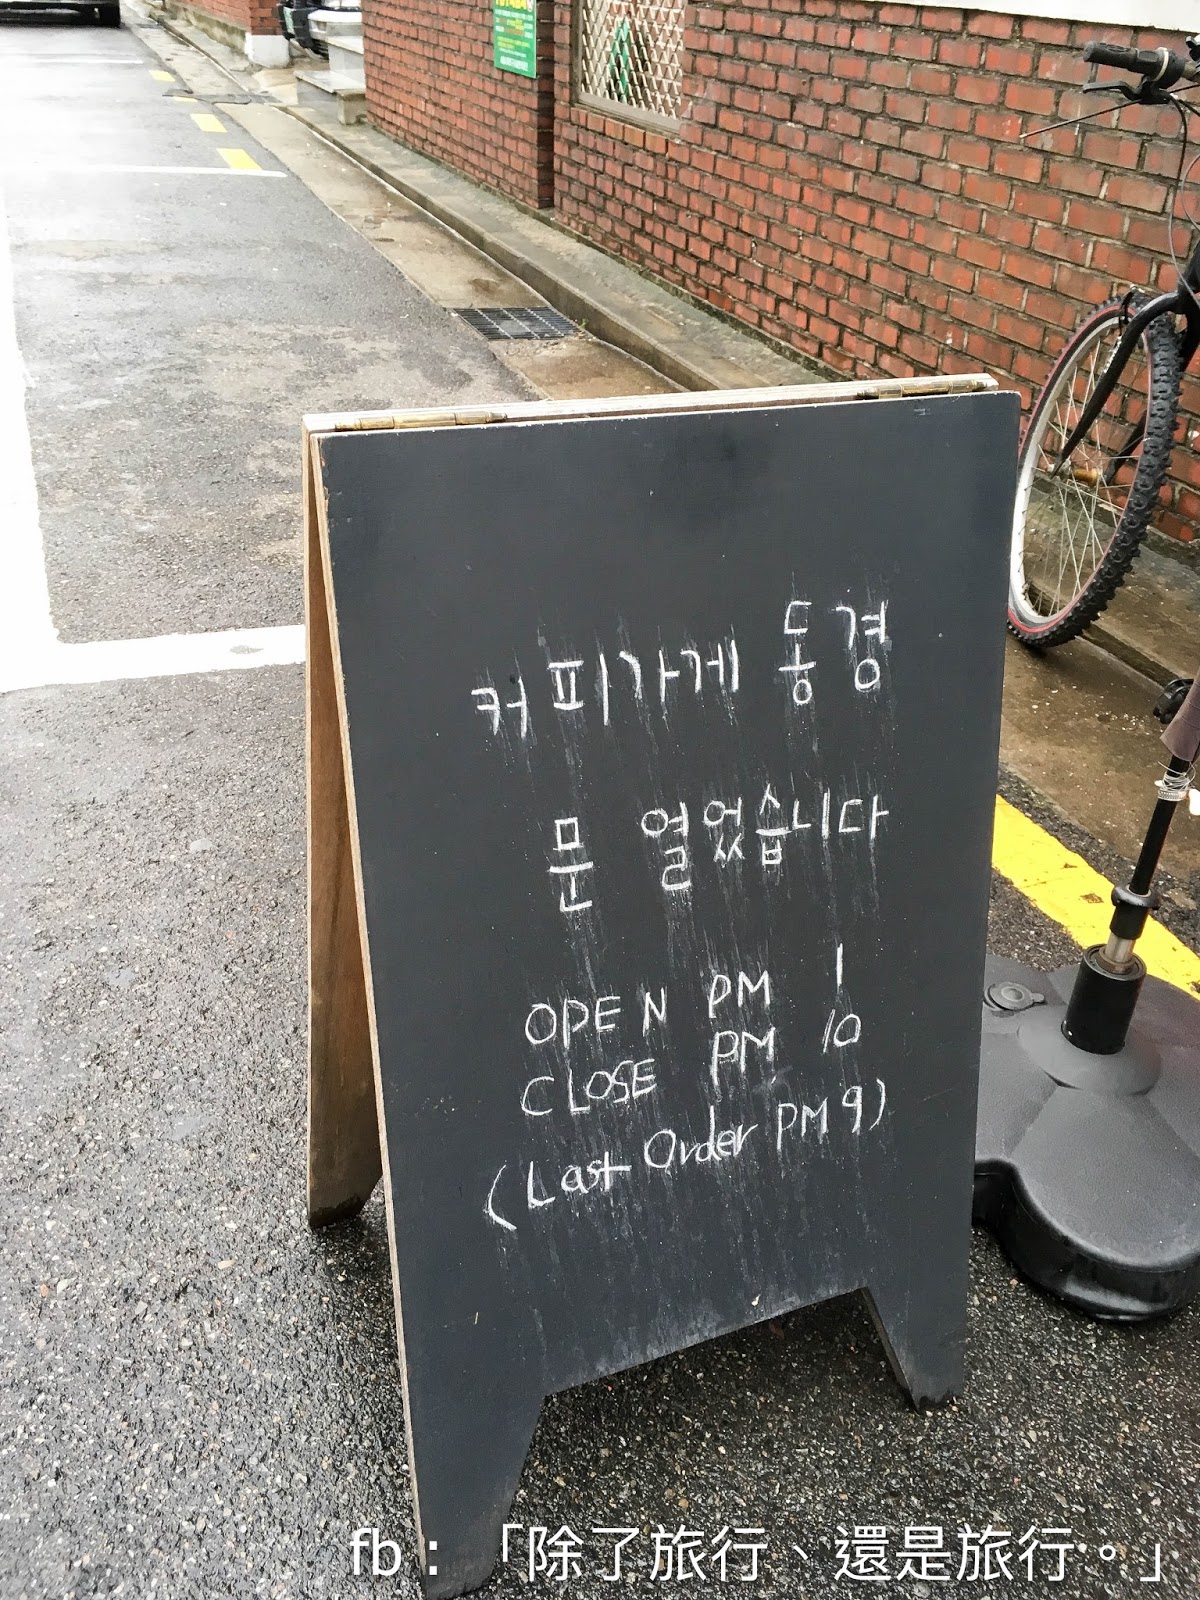 커피가게 동경
문 열었습니다
OPEN PM 1
CLOSE PM 10
(Last Order PM 9)
fb：「除了旅行、還是旅行。」